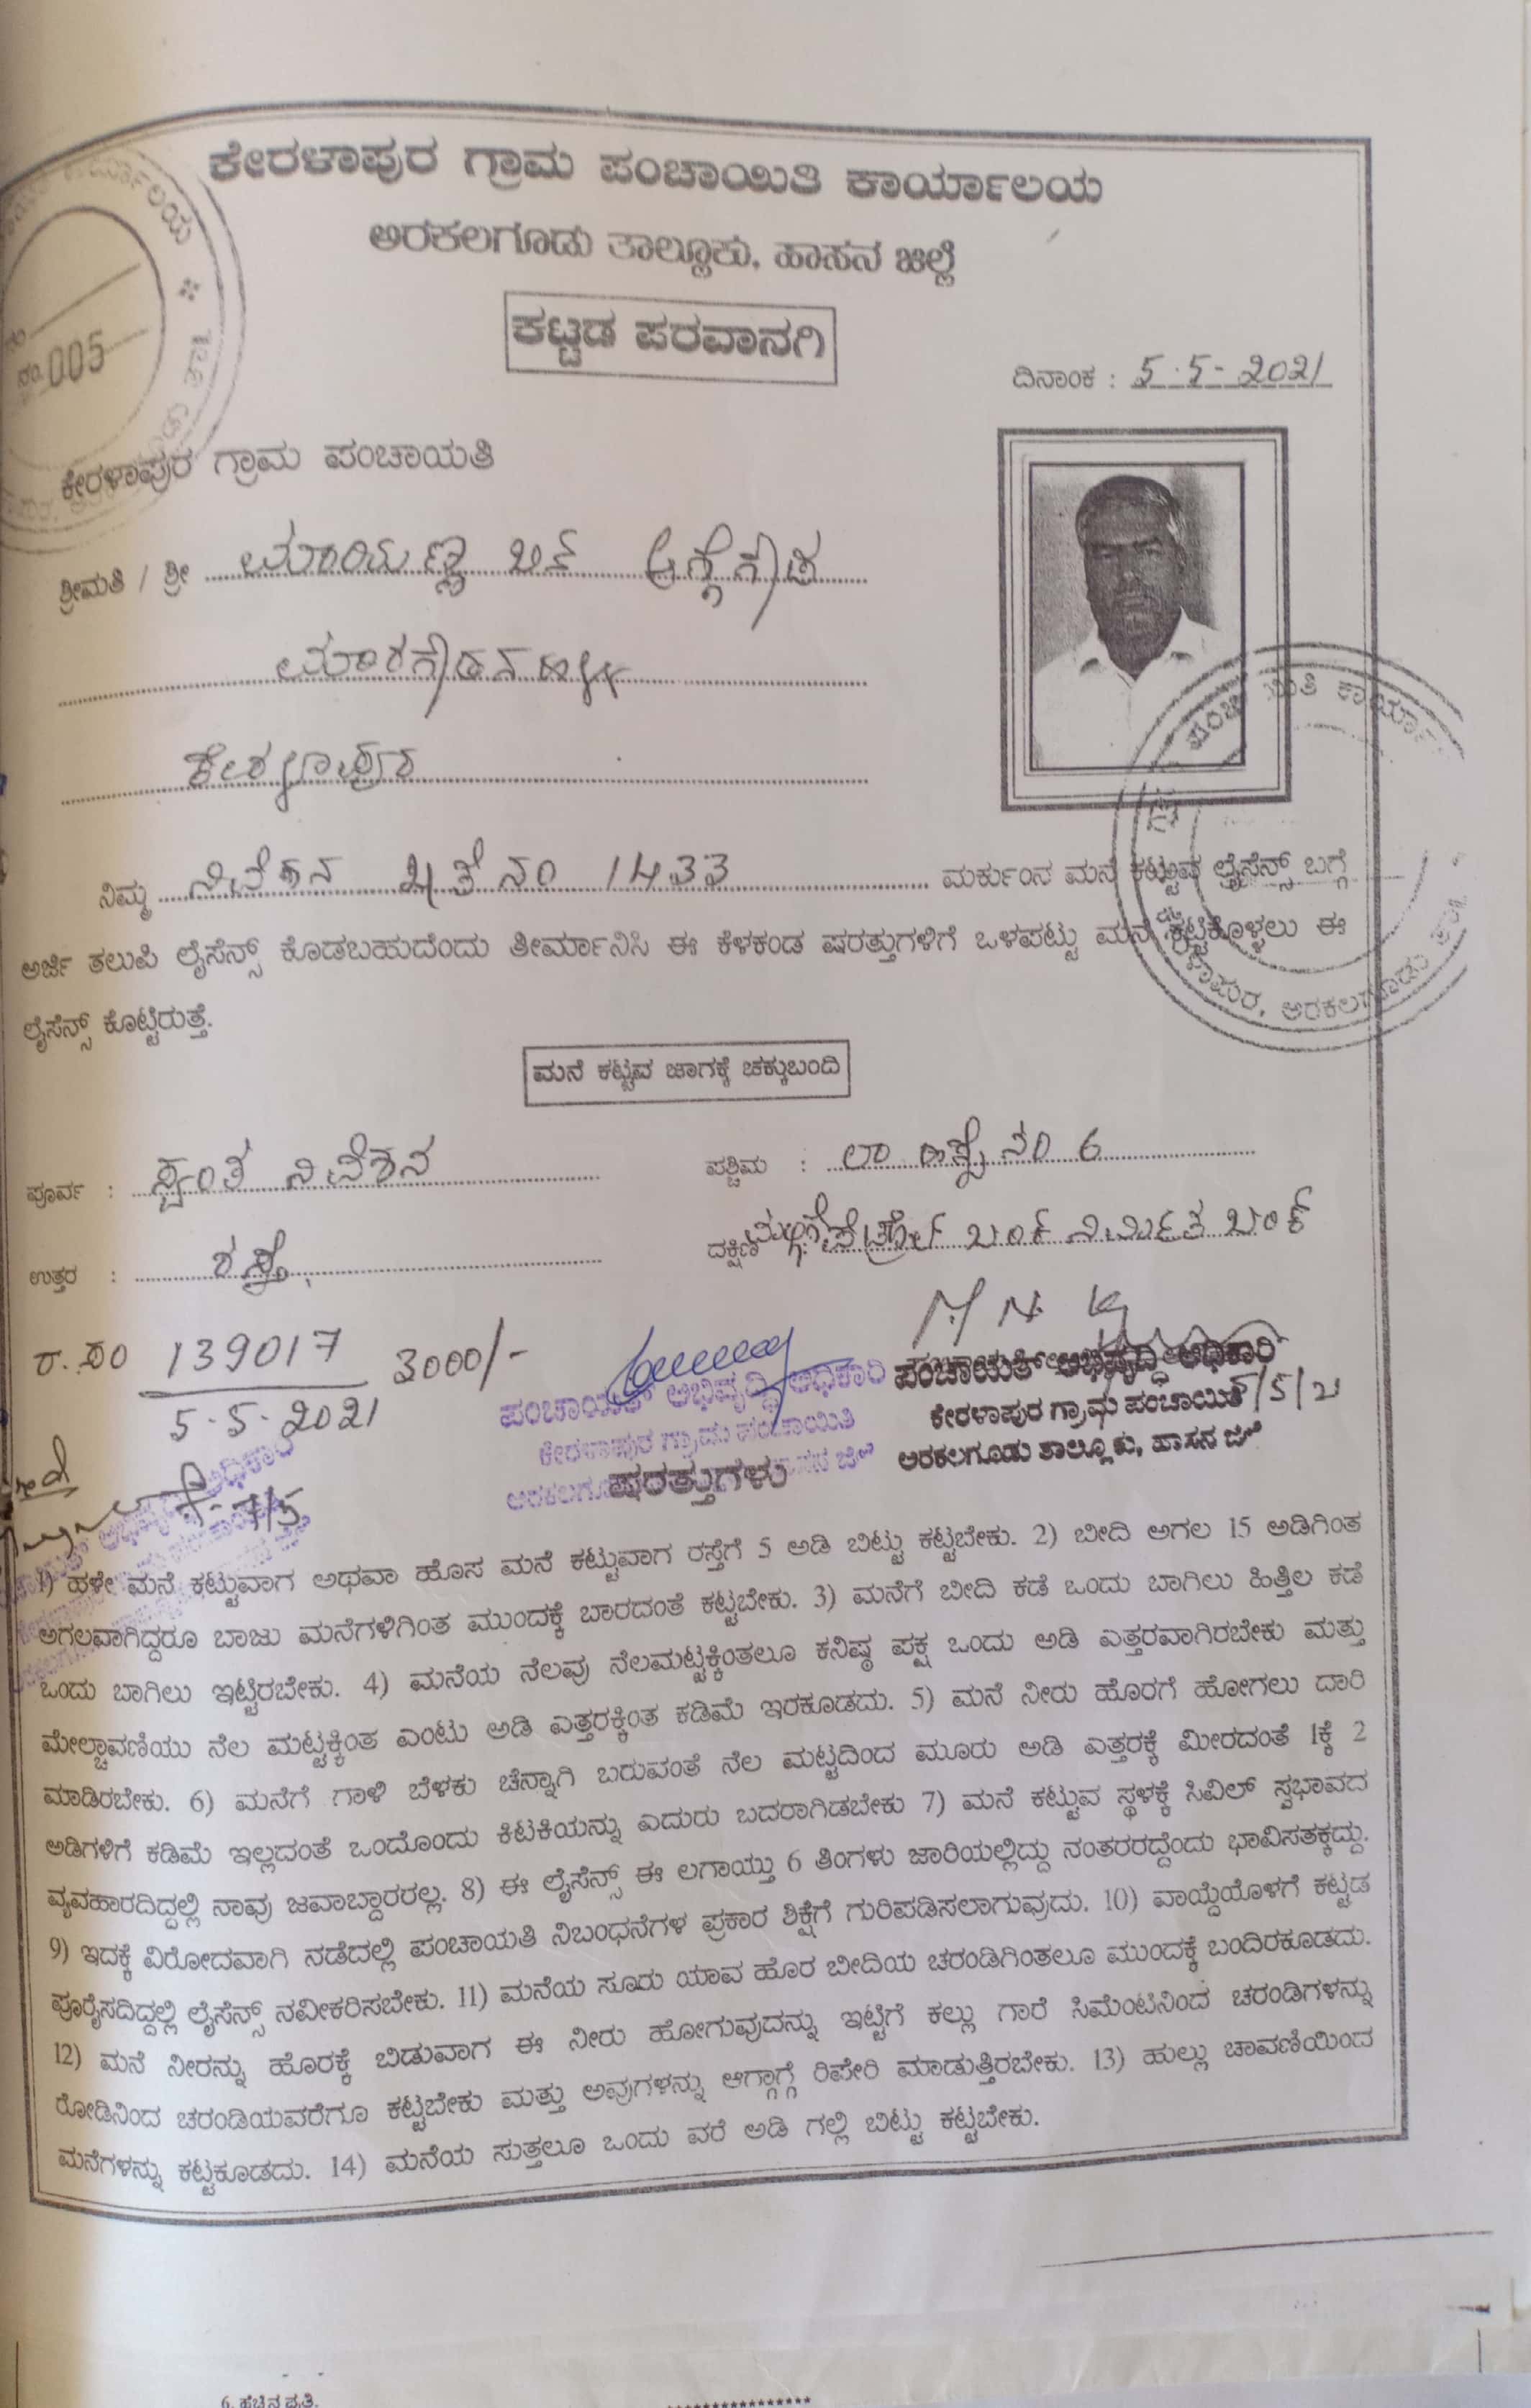 ಕೇರಳಾಪುರ ಗ್ರಾಮ ಪಂಚಾಯಿತಿ ಕಾರ್ಯಾಲಯ
ಅರಕಲಗೂಡು ತಾಲ್ಲೂಕು, ಹಾಸನ ಜಿಲ್ಲೆ
ಕಟ್ಟಡ ಪರವಾನಗಿ
ನಂ. 005
ದಿನಾಂಕ : 5-5-2021
ಕೇರಳಾಪುರ ಗ್ರಾಮ ಪಂಚಾಯತಿ
ಶ್ರೀಮತಿ / ಶ್ರೀ ಮಾಯಣ್ಣ ಬಿನ್
ಮಾರಗೌಡನಹಳ್ಳಿ
ಕೇರಳಾಪುರ
ನಿಮ್ಮ ನಿವೇಶನ ಖಾತೆ ನಂ 1433 ಮರ್ಕುಂನ ಮನೆ ಕಟ್ಟುವ ಲೈಸೆನ್ಸ್ ಬಗ್ಗೆ
ಅರ್ಜಿ ತಲುಪಿ ಲೈಸೆನ್ಸ್ ಕೊಡಬಹುದೆಂದು ತೀರ್ಮಾನಿಸಿ ಈ ಕೆಳಕಂಡ ಷರತ್ತುಗಳಿಗೆ ಒಳಪಟ್ಟು ಮನೆ ಕಟ್ಟಿಕೊಳ್ಳಲು ಈ
ಲೈಸೆನ್ಸ್ ಕೊಟ್ಟಿರುತ್ತೆ.
ಮನೆ ಕಟ್ಟುವ ಜಾಗಕ್ಕೆ ಚಕ್ಕುಬಂದಿ
ಪೂರ್ವ : ಸ್ವಂತ ನಿವೇಶನ
ಪಶ್ಚಿಮ : ನಂ 6
ಉತ್ತರ : ರಸ್ತೆ
ದಕ್ಷಿಣ ಪೆಟ್ರೋಲ್ ಬಂಕ್ ನಿರ್ಮಿತ ಬಂಕ್
ರ. ಸಂ 139017 3000/-
5-5-2021
ಪಂಚಾಯತ್ ಅಭಿವೃದ್ಧಿ ಅಧಿಕಾರಿ
ಕೇರಳಾಪುರ ಗ್ರಾಮ ಪಂಚಾಯಿತಿ
ಪಂಚಾಯತ್ ಅಭಿವೃದ್ಧಿ ಅಧಿಕಾರಿ
ಕೇರಳಾಪುರ ಗ್ರಾಮ ಪಂಚಾಯಿತಿ 5/5/21
ಅರಕಲಗೂಡು ತಾಲ್ಲೂಕು, ಹಾಸನ ಜಿಲ್ಲೆ
ಷರತ್ತುಗಳು
1) ಹಳೇ ಮನೆ ಕಟ್ಟುವಾಗ ಅಥವಾ ಹೊಸ ಮನೆ ಕಟ್ಟುವಾಗ ರಸ್ತೆಗೆ 5 ಅಡಿ ಬಿಟ್ಟು ಕಟ್ಟಬೇಕು. 2) ಬೀದಿ ಅಗಲ 15 ಅಡಿಗಿಂತ
ಅಗಲವಾಗಿದ್ದರೂ ಬಾಜು ಮನೆಗಳಿಗಿಂತ ಮುಂದಕ್ಕೆ ಬಾರದಂತೆ ಕಟ್ಟಬೇಕು. 3) ಮನೆಗೆ ಬೀದಿ ಕಡೆ ಒಂದು ಬಾಗಿಲು ಹಿತ್ತಿಲ ಕಡೆ
ಒಂದು ಬಾಗಿಲು ಇಟ್ಟಿರಬೇಕು. 4) ಮನೆಯ ನೆಲವು ನೆಲಮಟ್ಟಕ್ಕಿಂತಲೂ ಕನಿಷ್ಠ ಪಕ್ಷ ಒಂದು ಅಡಿ ಎತ್ತರವಾಗಿರಬೇಕು ಮತ್ತು
ಮೇಲ್ಚಾವಣಿಯು ನೆಲ ಮಟ್ಟಕ್ಕಿಂತ ಎಂಟು ಅಡಿ ಎತ್ತರಕ್ಕಿಂತ ಕಡಿಮೆ ಇರಕೂಡದು. 5) ಮನೆ ನೀರು ಹೊರಗೆ ಹೋಗಲು ದಾರಿ
ಮಾಡಿರಬೇಕು. 6) ಮನೆಗೆ ಗಾಳಿ ಬೆಳಕು ಚೆನ್ನಾಗಿ ಬರುವಂತೆ ನೆಲ ಮಟ್ಟದಿಂದ ಮೂರು ಅಡಿ ಎತ್ತರಕ್ಕೆ ಮೀರದಂತೆ 1ಕ್ಕೆ 2
ಅಡಿಗಳಿಗೆ ಕಡಿಮೆ ಇಲ್ಲದಂತೆ ಒಂದೊಂದು ಕಿಟಕಿಯನ್ನು ಎದುರು ಬದರಾಗಿಡಬೇಕು 7) ಮನೆ ಕಟ್ಟುವ ಸ್ಥಳಕ್ಕೆ ಸಿವಿಲ್ ಸ್ವಭಾವದ
ವ್ಯವಹಾರದಿದ್ದಲ್ಲಿ ನಾವು ಜವಾಬ್ದಾರರಲ್ಲ. 8) ಈ ಲೈಸೆನ್ಸ್ ಈ ಲಗಾಯ್ತು 6 ತಿಂಗಳು ಜಾರಿಯಲ್ಲಿದ್ದು ನಂತರರದ್ದೆಂದು ಭಾವಿಸತಕ್ಕದ್ದು.
9) ಇದಕ್ಕೆ ವಿರೋದವಾಗಿ ನಡೆದಲ್ಲಿ ಪಂಚಾಯತಿ ನಿಬಂಧನೆಗಳ ಪ್ರಕಾರ ಶಿಕ್ಷೆಗೆ ಗುರಿಪಡಿಸಲಾಗುವುದು. 10) ವಾಯ್ದೆಯೊಳಗೆ ಕಟ್ಟಡ
ಪೂರೈಸದಿದ್ದಲ್ಲಿ ಲೈಸೆನ್ಸ್ ನವೀಕರಿಸಬೇಕು. 11) ಮನೆಯ ಸೂರು ಯಾವ ಹೊರ ಬೀದಿಯ ಚರಂಡಿಗಿಂತಲೂ ಮುಂದಕ್ಕೆ ಬಂದಿರಕೂಡದು.
12) ಮನೆ ನೀರನ್ನು ಹೊರಕ್ಕೆ ಬಿಡುವಾಗ ಈ ನೀರು ಹೋಗುವುದನ್ನು ಇಟ್ಟಿಗೆ ಕಲ್ಲು ಗಾರೆ ಸಿಮೆಂಟಿನಿಂದ ಚರಂಡಿಗಳನ್ನು
ರೋಡಿನಿಂದ ಚರಂಡಿಯವರೆಗೂ ಕಟ್ಟಬೇಕು ಮತ್ತು ಅವುಗಳನ್ನು ಆಗ್ಗಾಗ್ಗೆ ರಿಪೇರಿ ಮಾಡುತ್ತಿರಬೇಕು. 13) ಹುಲ್ಲು ಚಾವಣಿಯಿಂದ
ಮನೆಗಳನ್ನು ಕಟ್ಟಕೂಡದು. 14) ಮನೆಯ ಸುತ್ತಲೂ ಒಂದು ವರೆ ಅಡಿ ಗಲ್ಲಿ ಬಿಟ್ಟು ಕಟ್ಟಬೇಕು.